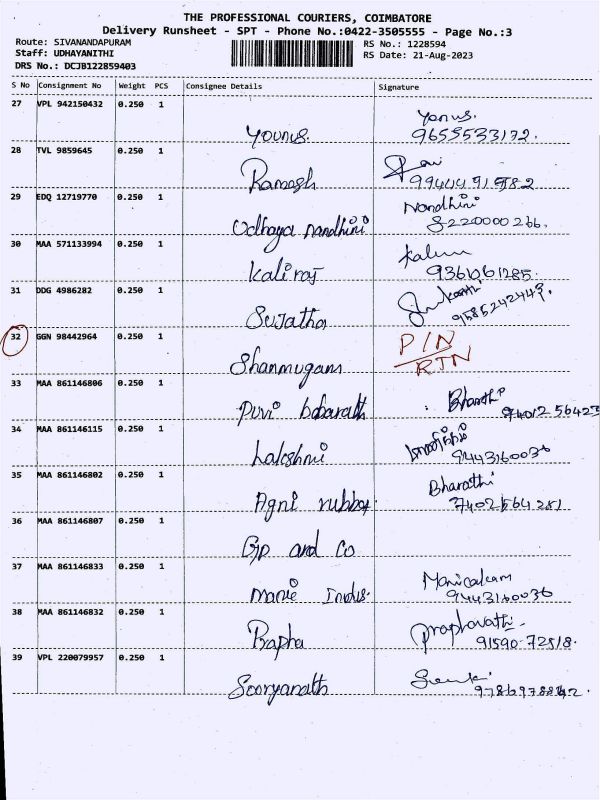 THE PROFESSIONAL COURIERS, COIMBATORE
Delivery Runsheet - SPT - Phone No.:0422-3505555 - Page No.:3
Route: SIVANANDAPURAM
Staff: UDHAYANITHI
DRS No.: DCJB122859403
RS No.: 1228594
RS Date: 21-Aug-2023
S No Consignment No Weight PCS Consignee Details Signature
27 VPL 942150432 0.250 1
Younus. Yonus. 9655533172.
28 TVL 9859645 0.250 1
Ramesh 9944491582
29 EDQ 12719770 0.250 1
Udhaya nandhini Nandhini 8220000266.
30 MAA 571133994 0.250 1
Kaliraj 9361061285.
31 DDG 4986282 0.250 1
Sujatha 9585242449.
32 GGN 98442964 0.250 1
Shanmugam PIN RTN
33 MAA 861146806 0.250 1
Puvi Bharathi
34 MAA 861146115 0.250 1
Lakshmi 9443160036
35 MAA 861146802 0.250 1
Agni rubber. Bharathi 7402564281
36 MAA 861146807 0.250 1
Gip and Co
37 MAA 861146833 0.250 1
Manie Indus. Manickam 9443160036
38 MAA 861146832 0.250 1
Prapha Praphavathi- 91590-72518.
39 VPL 220079957 0.250 1
Sooryanath